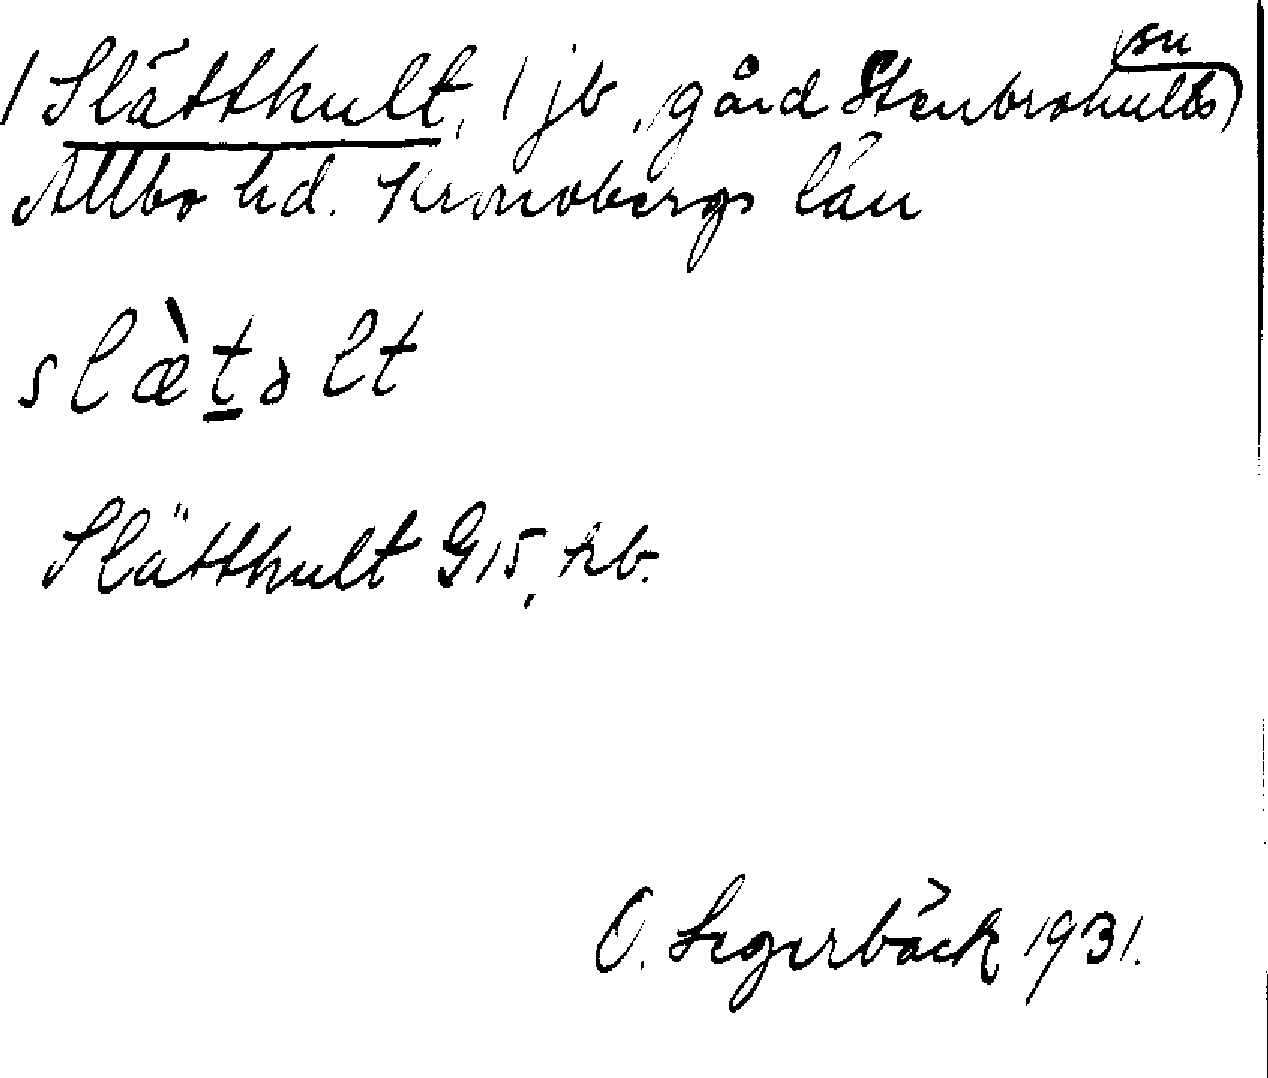 1 Slätthult, 1 jb, gård Stenbrohults sn
Allbo hd. Kronobergs län
slæ̀t̠əlt
Slätthult G15, hb.
O. Segerbäck 1931.